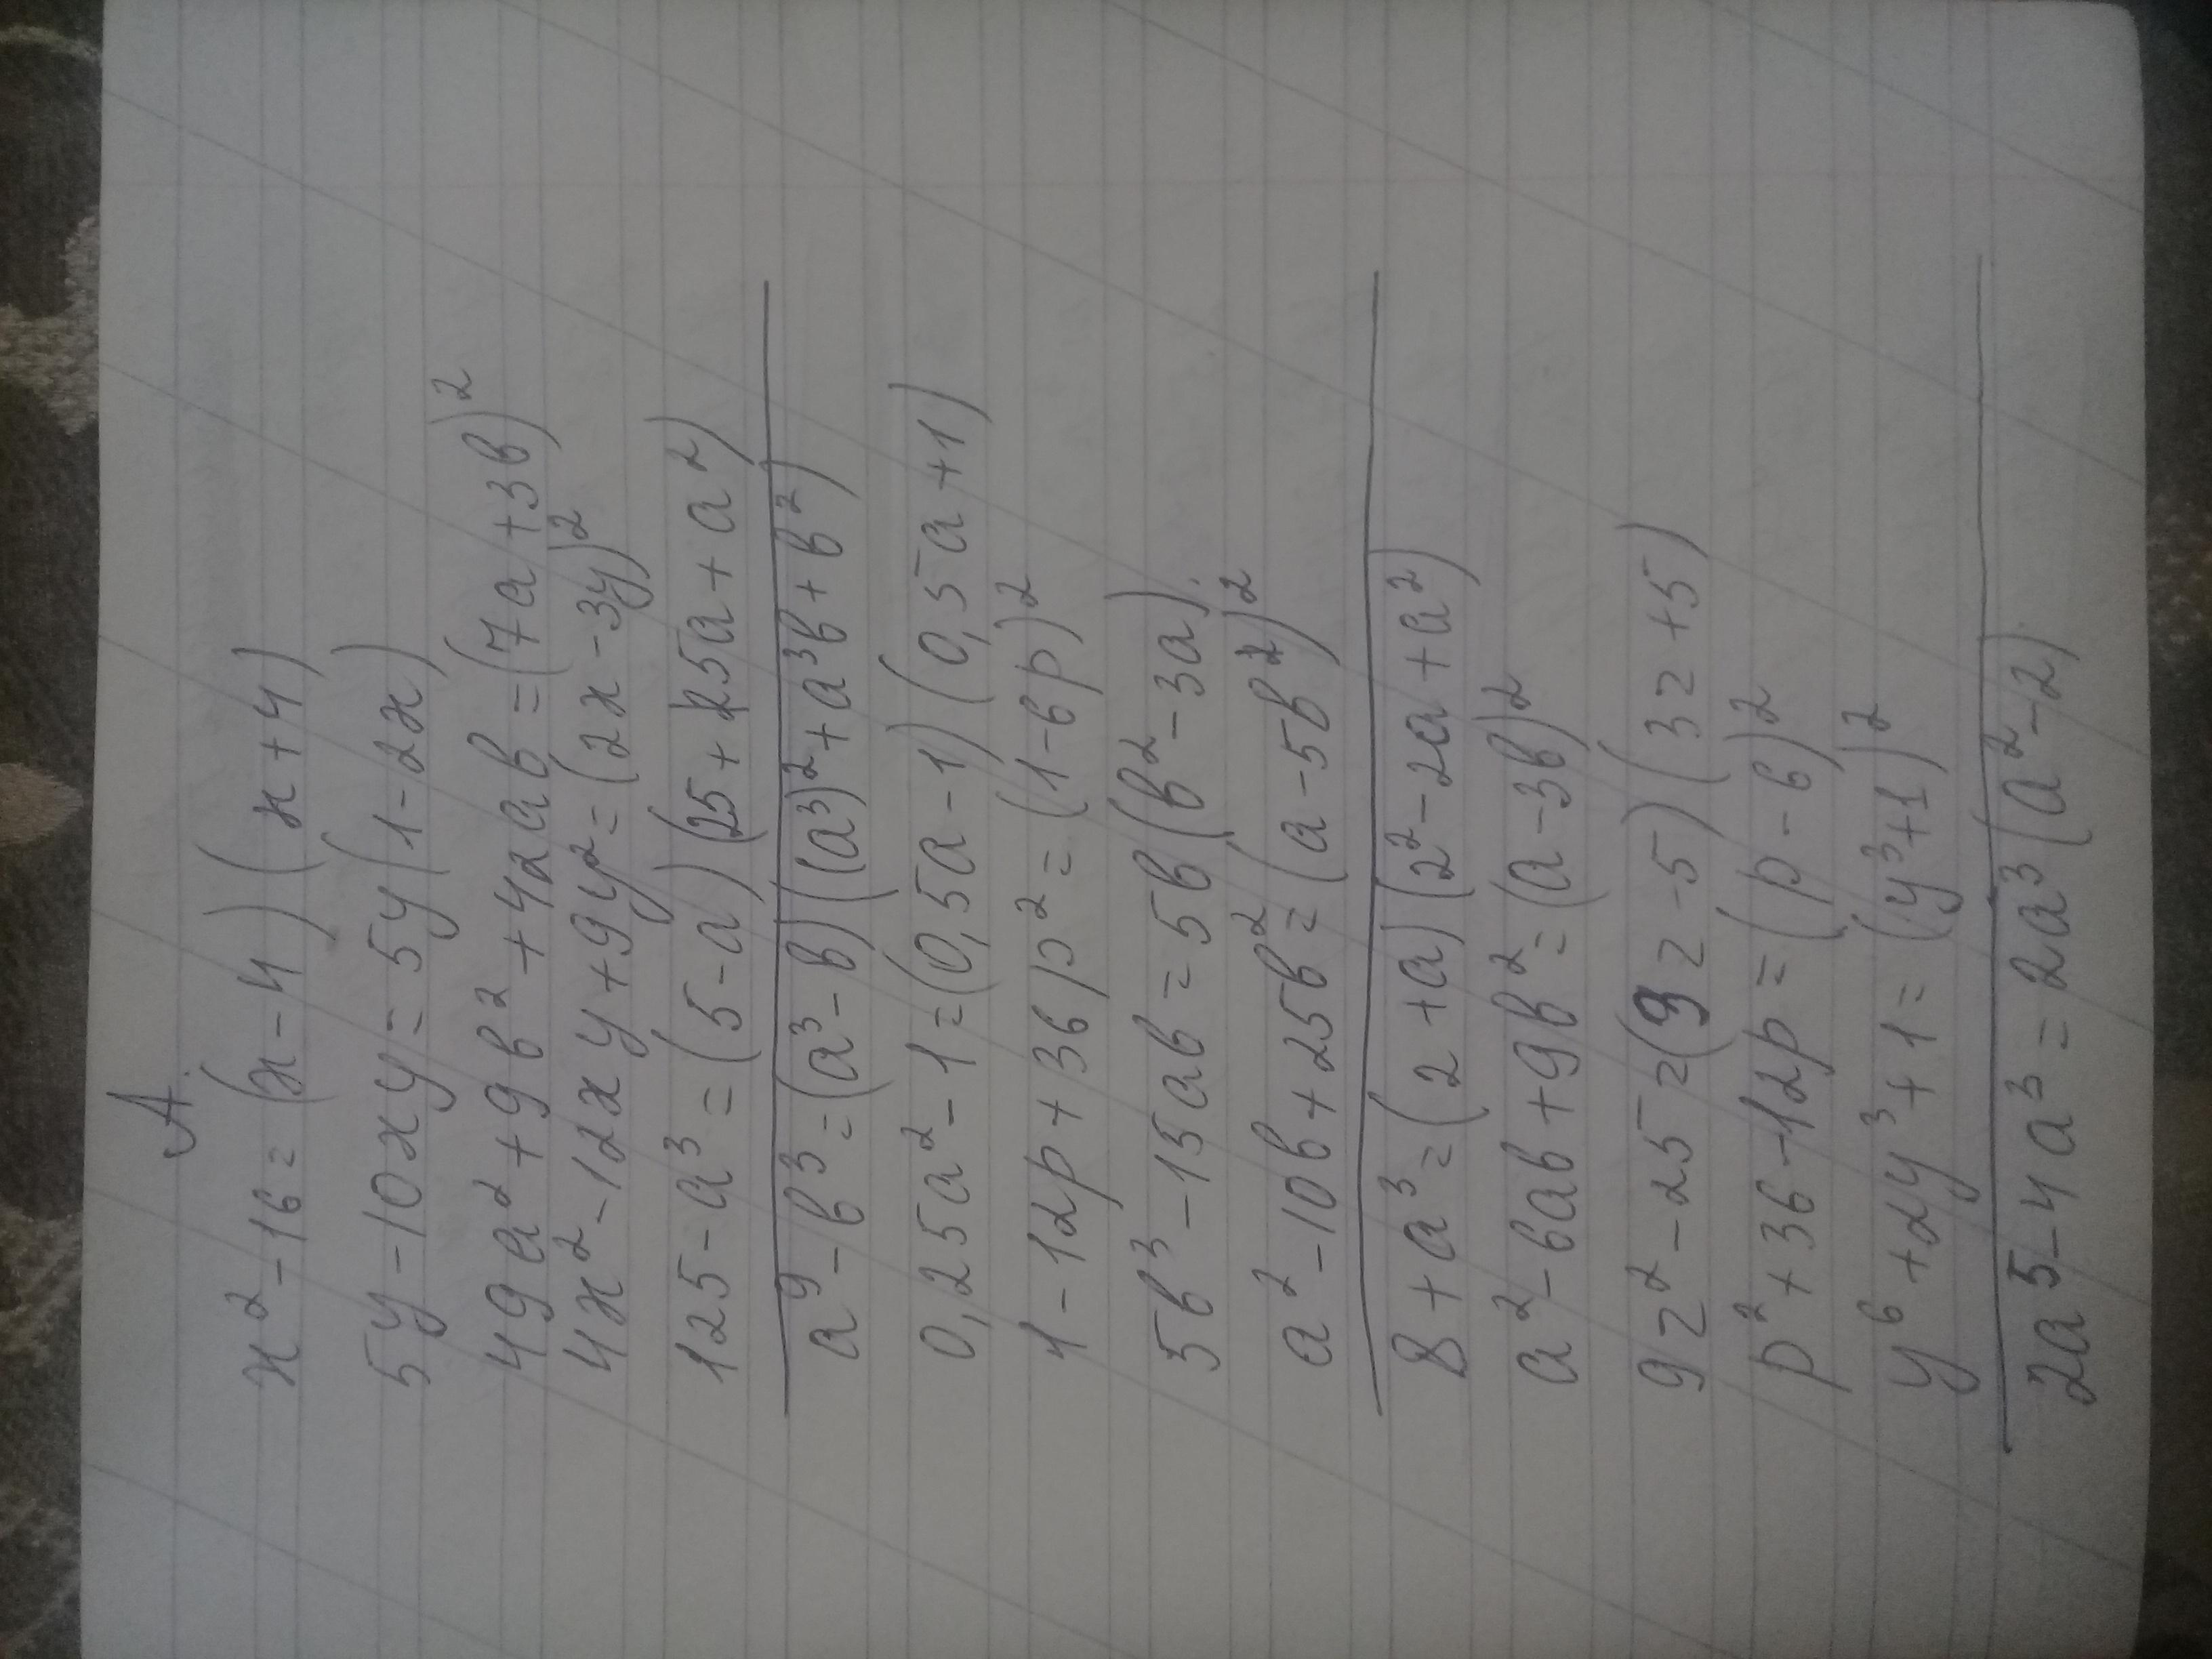 А.
x² - 16 = (x - 4)(x + 4)
5y - 10xy = 5y(1 - 2x)
49a² + 9b² + 42ab = (7a + 3b)²
4x² - 12xy + 9y² = (2x - 3y)²
125 - a³ = (5 - a)(25 + 25a + a²)
a⁹ - b³ = (a³ - b)((a³)² + a³b + b²)
0,25a² - 1 = (0,5a - 1)(0,5a + 1)
1 - 12p + 36p² = (1 - 6p)²
5b³ - 15ab = 5b(b² - 3a)
a² - 10b + 25b² = (a - 5b²)²
8 + a³ = (2 + a)(2² - 2a + a²)
a² - 6ab + 9b² = (a - 3b)²
9z² - 25 = (9z - 5)(3z + 5)
p² + 36 - 12p = (p - 6)²
y⁶ + 2y³ + 1 = (y³ + 1)²
2a⁵ - 4a³ = 2a³(a² - 2)